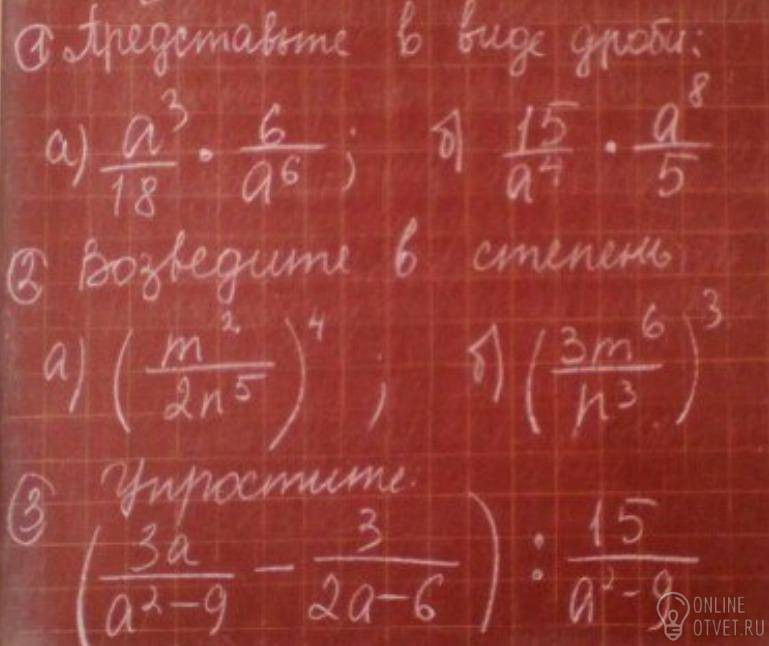 ① Представьте в виде дроби:
а) a³/18 · 6/a⁶ ; б) 15/a⁴ · a⁸/5
② Возведите в степень
а) (m²/2n⁵)⁴ ; б) (3m⁶/n³)³
③ Упростите.
(3a/(a²-9) - 3/(2a-6)) : 15/(a²-9)
ONLINE
OTVET.RU